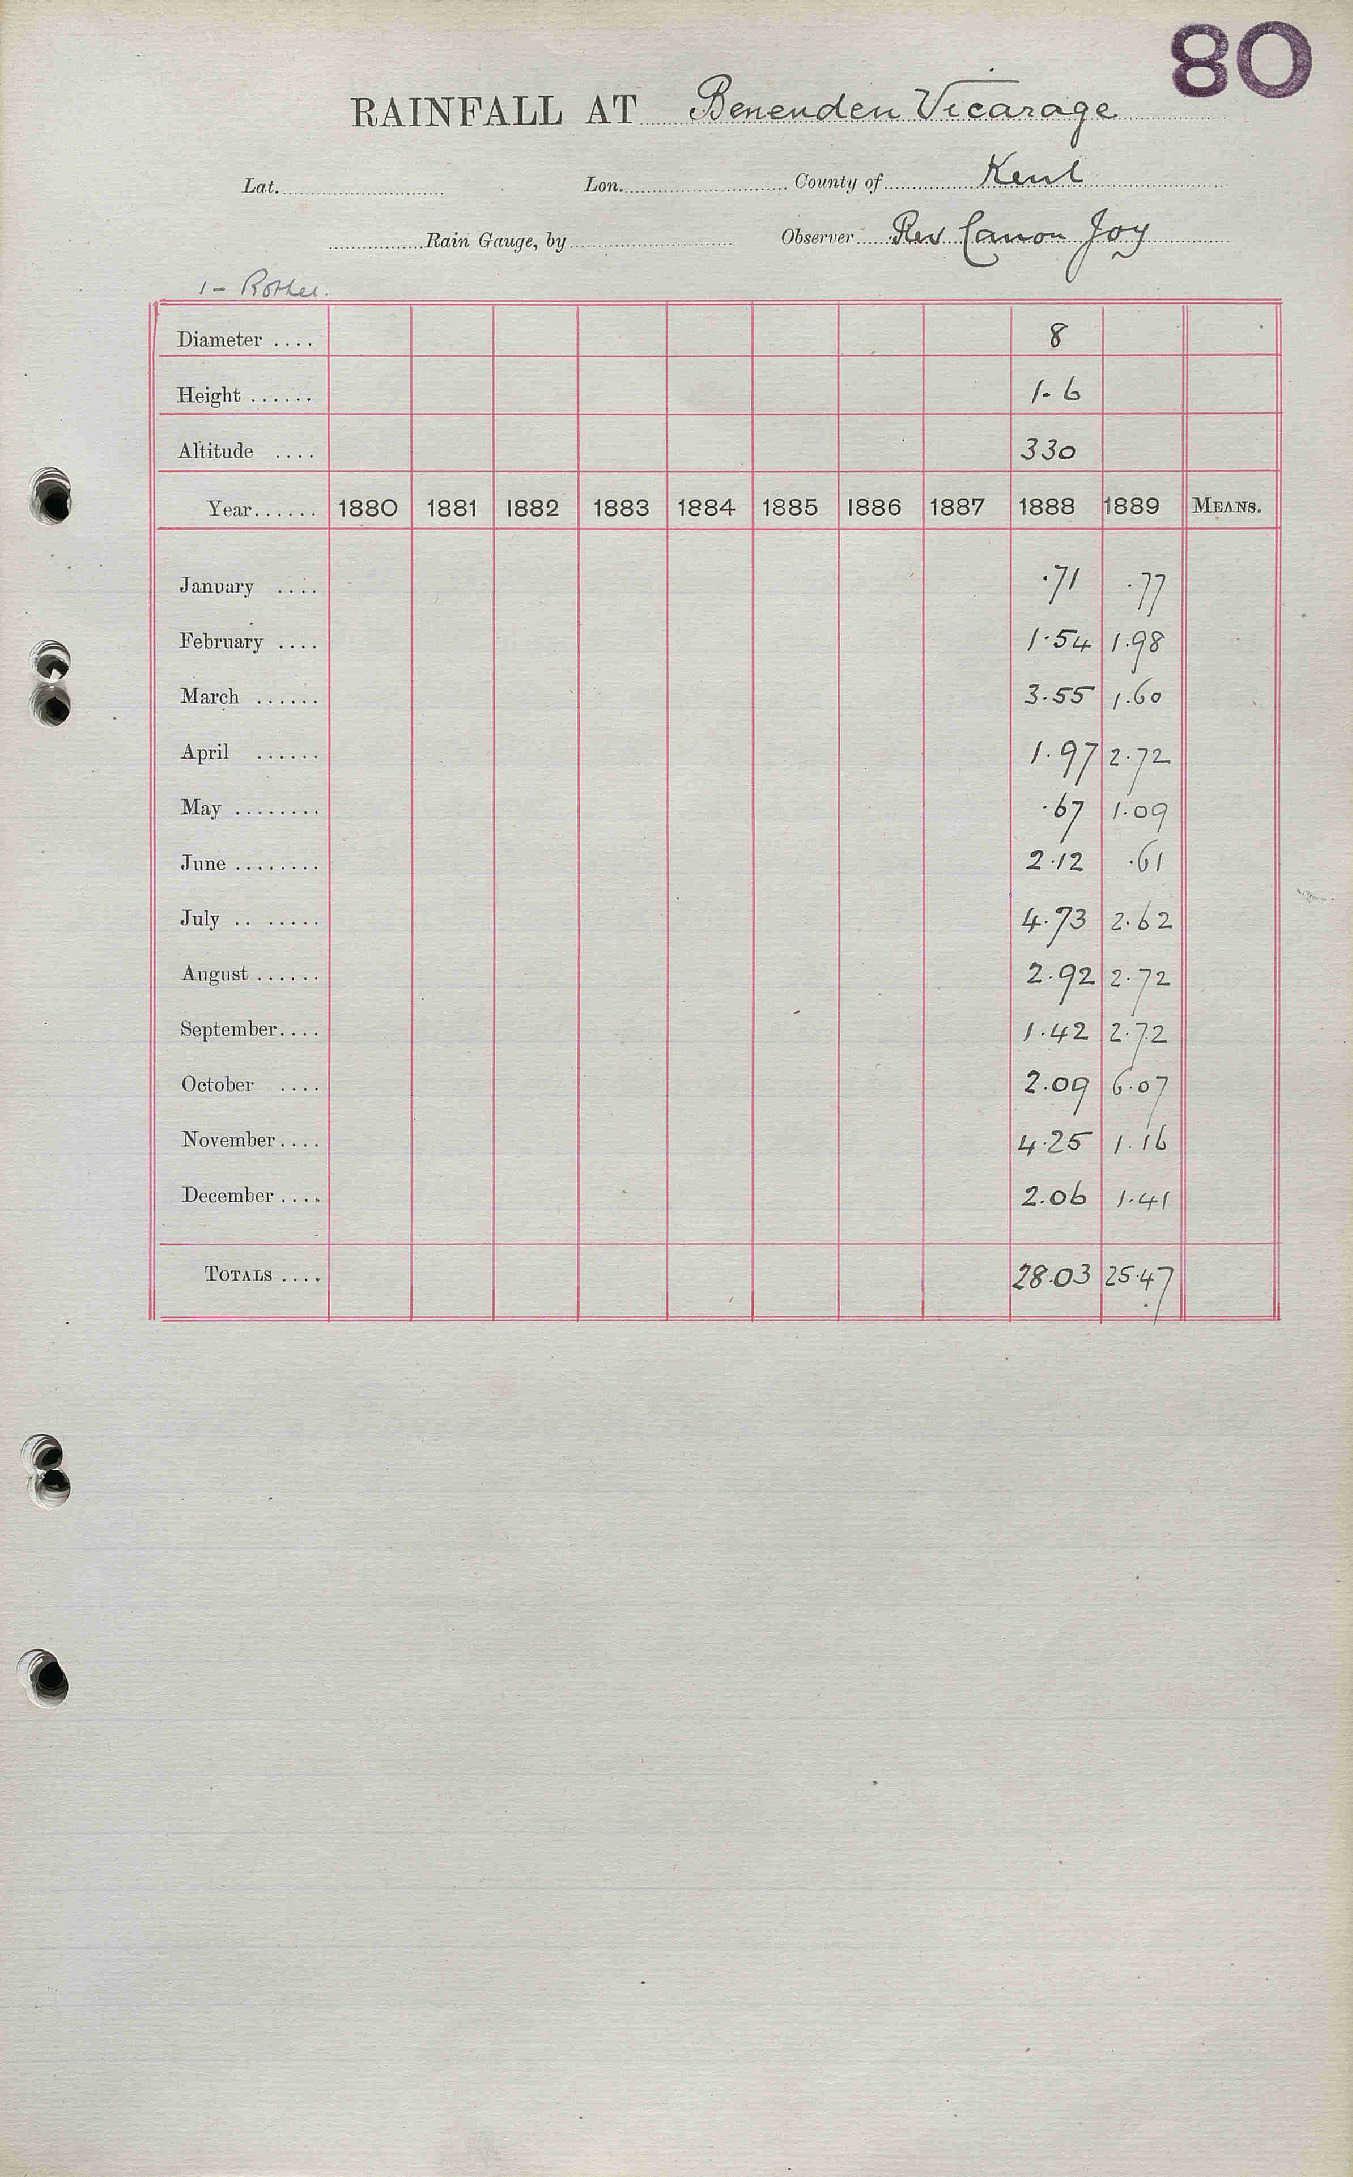 80
RAINFALL AT Benenden Vicarage
Lat. Lon. County of Kent
Rain Gauge, by Observer Rev Canon Joy
1 - Rother.
Diameter .... 8
Height ...... 1-6
Altitude .... 330
Year...... 1880 1881 1882 1883 1884 1885 1886 1887 1888 1889 MEANS.
January .... .71 .77
February .... 1.54 1.98
March ...... 3.55 1.60
April ...... 1.97 2.72
May ........ .67 1.09
June ........ 2.12 .61
July .. ..... 4.73 2.62
August ...... 2.92 2.72
September.... 1.42 2.72
October .... 2.09 6.07
November.... 4.25 1.16
December .... 2.06 1.41
TOTALS .... 28.03 25.47